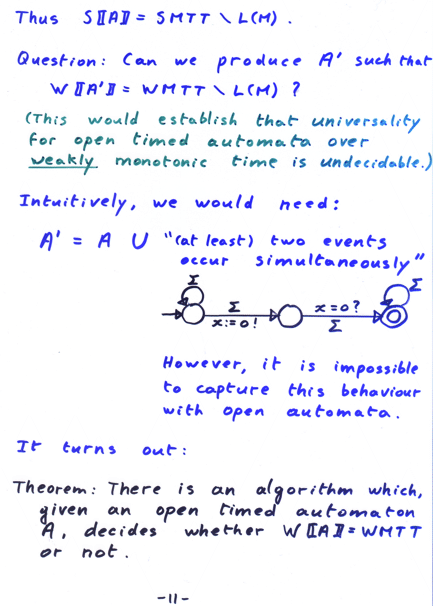 Thus S⟦A⟧ = SMTT \ L(M).
Question: Can we produce A' such that
W⟦A'⟧ = WMTT \ L(M)?
(This would establish that universality
for open timed automata over
weakly monotonic time is undecidable.)
Intuitively, we would need:
A' = A ∪ "(at least) two events
occur simultaneously"
Σ
Σ
x:=0!
x=0?
Σ
Σ
However, it is impossible
to capture this behaviour
with open automata.
It turns out:
Theorem: There is an algorithm which,
given an open timed automaton
A, decides whether W⟦A⟧=WMTT
or not.
-11-